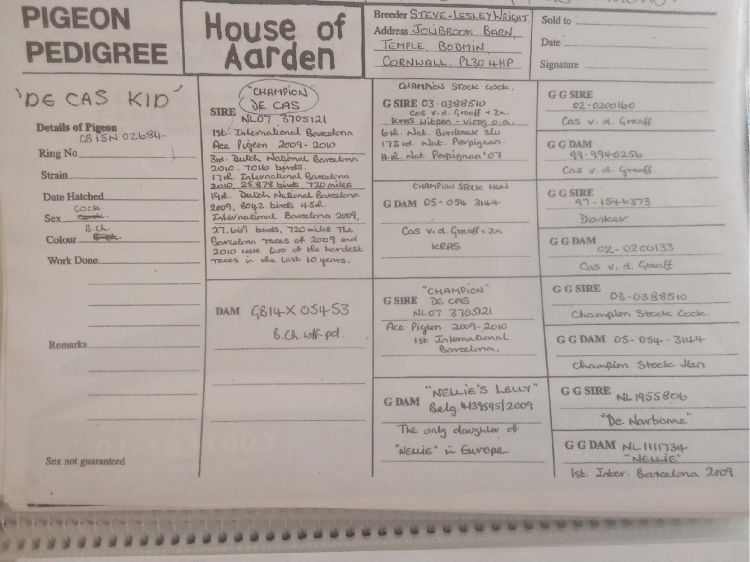 PIGEON
PEDIGREE
House of
Aarden
Breeder STEVE - LESLEY WRIGHT.
Address JOLIBROOK BARN,
TEMPLE, BODMIN,
CORNWALL. PL30 4HP
Sold to
Date
Signature
'DE CAS KID'
Details of Pigeon
GB15N 02684
Ring No
Strain
Date Hatched
Cock
Sex
B.Ch.
Colour
Work Done
Remarks
Sex not guaranteed
"CHAMPION"
DE CAS
SIRE
NL07 3705121
1st. International Barcelona
Ace Pigeon 2009-2010
3rd. Dutch National Barcelona
2010, 7016 birds.
17th. International Barcelona
2010, 25,878 birds 720 miles
19th. Dutch National Barcelona
2009, 8042 birds 45th.
International Barcelona 2009,
27,669 birds, 720 miles The
Barcelona races of 2009 and
2010 were two of the hardest
races in the last 10 years.
DAM GB14-X 05453
B.Ch. wff-pd.
CHAMPION STOCK COCK.
G SIRE 03-0388510
Cas v.d. Graaff + Zn.
6th. Nat. Bordeaux ZLU
173rd. Nat. Perpignan.
Nat. Perpignan '07
CHAMPION STOCK HEN
G DAM 05-054 3144
Cas v.d. Graaff + Zn
KRAS
"CHAMPION"
G SIRE DE CAS
NL07 3705121
Ace Pigeon 2009-2010
1st International
Barcelona.
"NELLIE'S LELLY"
G DAM
Belg. 4139595/2009
The only daughter of
"NELLIE" in Europe
G G SIRE
02-0200160
Cas v. d. Graaff.
G G DAM
99-9940256
Cas v. d. Graaff.
G G SIRE
97-1546373
Donker
G G DAM
02-0200133
Cas v. d. Graaff
G G SIRE
03-0388510
Champion Stock Cock.
G G DAM 05-054-3144
Champion Stock Hen
G G SIRE NL1955806
"De Narbonne"
G G DAM NL1111734
"NELLIE"
1st. Inter. Barcelona 2009